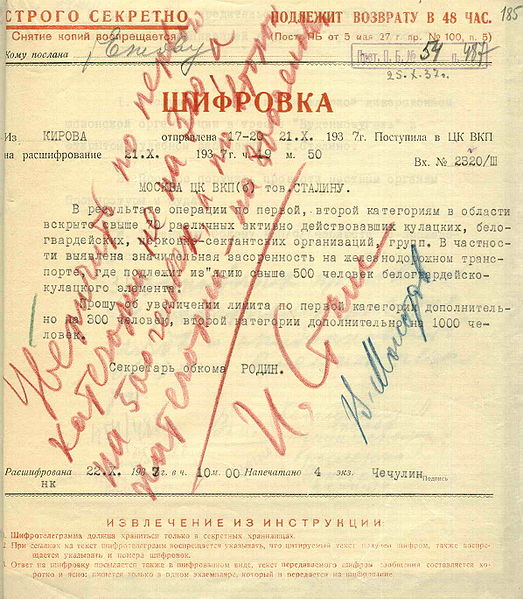 185
СТРОГО СЕКРЕТНО
Снятие копий воспрещается
ПОДЛЕЖИТ ВОЗВРАТУ В 48 ЧАС.
(Пост. ПБ от 5 мая 27 г. пр. № 100, п. 5)
Кому послана
Ежову
Прот. П. Б. № 54 п. 487
25.X.37г.
ШИФРОВКА
Из КИРОВА отправлена 17-20 21.X. 1937г. Поступила в ЦК ВКП
на расшифрование 21.X. 1937г. ч. 19 м. 50
Вх. № 2320/Ш
МОСКВА ЦК ВКП(б) тов. СТАЛИНУ.
В результате операции по первой, второй категориям в области
вскрыто свыше различных активно действовавших кулацких, бело-
гвардейских, церковно-сектантских организаций, групп. В частнос-
ти выявлена значительная засоренность на железнодорожном транс-
порте, где подлежит из"ятию свыше 500 человек белогвардейско-
кулацкого элемента.
Прошу об увеличении лимита по первой категории дополнитель-
но на 300 человек, второй категории дополнительно на 1000 че-
ловек.
Секретарь обкома РОДИН.
Увеличить по первой
категории не на 300 а
на 500 человек, а по второй
категории - на 800 человек
И. Сталин
В. Молотов
Расшифрована 22.X. 1937г. в ч. 10 м. 00 Напечатано 4 экз. Чечулин
Подпись
нк
ИЗВЛЕЧЕНИЕ ИЗ ИНСТРУКЦИИ:
1. Шифротелеграмма должна храниться только в секретных хранилищах.
2. При ссылках на текст шифротелеграмм воспрещается указывать, что цитируемый текст получен шифром, также воспре-
щается указывать и номера шифровок.
3. Ответ на шифровку посылается также в шифрованном виде, текст передаваемого шифром сообщения составляется ко-
ротко и ясно; пишется только в одном экземпляре, который и передается на шифрование.